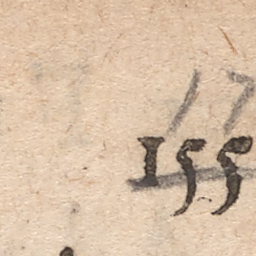 17
155